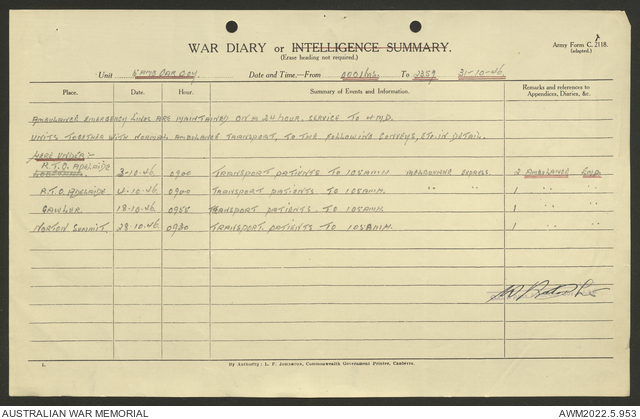 WAR DIARY or INTELLIGENCE SUMMARY.
Army Form C. 2118.
(Erase heading not required.)
(adapted.)
Unit Date and Time.—From 0001 hrs. To 2359 31-10-46
Place. Date. Hour. Summary of Events and Information. Remarks and references to Appendices, Diaries, &c.
AMBULANCE EMERGENCY LINES ARE MAINTAINED ON A 24 HOUR. SERVICE TO 4 M.D.
UNITS TOGETHER WITH NORMAL AMBULANCE TRANSPORT, TO THE FOLLOWING CONVOYS, ETC. IN DETAIL.
HERE UNDER:-
R.T.O. ADELAIDE 3-10-46 0900 TRANSPORT PATIENTS TO 105 AMH MELBOURNE EXPRESS. 2 AMBULANCE
R.T.O. ADELAIDE. 4-10-46. 0900 TRANSPORT PATIENTS TO 105 AMH. " " 1 " "
GAWLER. 18-10-46. 0955 TRANSPORT PATIENTS. TO 105 AMH. 1 " "
NORTON SUMMIT. 28-10-46. 0930 TRANSPORT. PATIENTS TO 105 AMH. 1 " "
1.
By Authority: L. F. Johnston, Commonwealth Government Printer, Canberra.
AUSTRALIAN WAR MEMORIAL
AWM2022.5.953